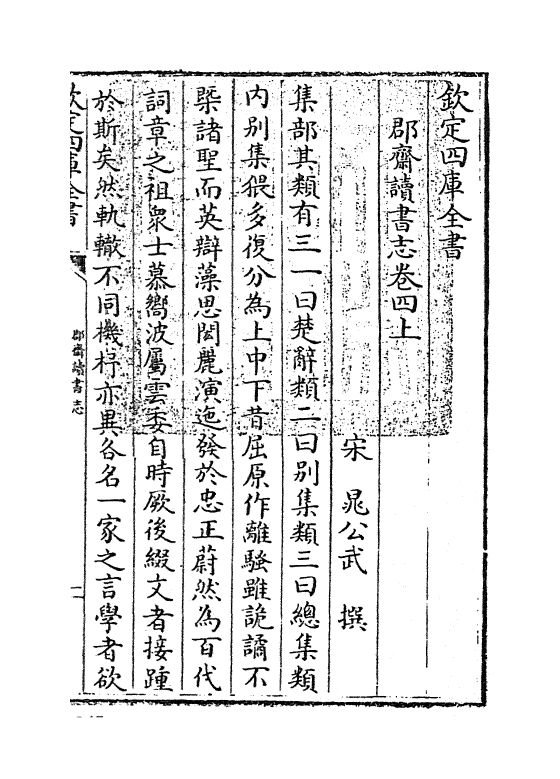 欽定四庫全書
郡齋讀書志卷四上
宋 晁公武 撰
集部其類有三一曰楚辭類二曰别集類三曰總集類
内别集猥多復分為上中下昔屈原作離騷雖詭譎不
槩諸聖而英辯藻思閎麗演迤發於忠正蔚然為百代
詞章之祖衆士慕嚮波屬雲委自時厥後綴文者接踵
於斯矣然軌轍不同機杼亦異各名一家之言學者欲
欽定四庫全書
郡齋讀書志
一